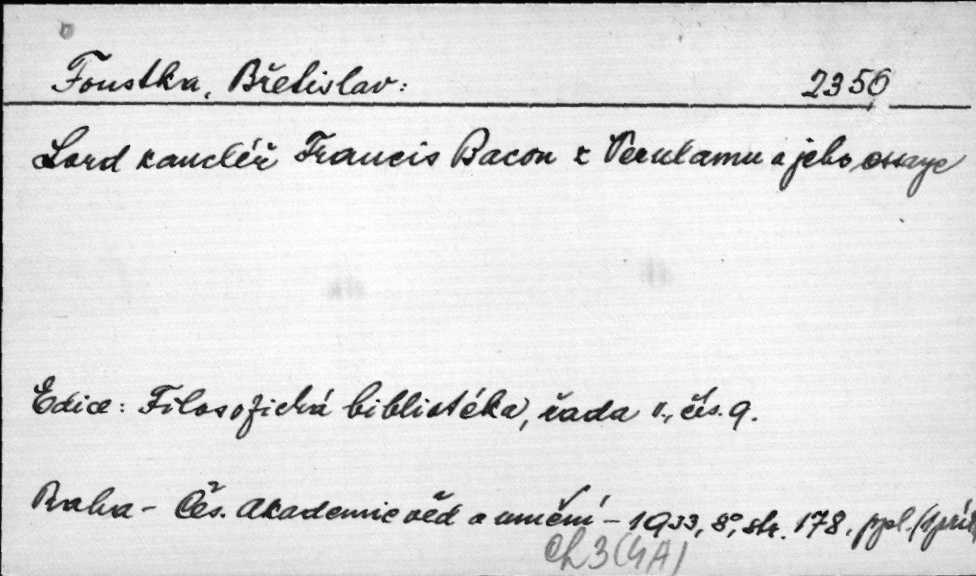 Foustka, Břetislav: 2356
Lord kancléř Francis Bacon z Verulamu a jeho essaye
Edice: Filosofická bibliotéka, řada II., čís. 9.
Praha - Čes. Akademie věd a umění - 1933, 8°, str. 178, ppl. (1 příl
Ch 3 (4A)